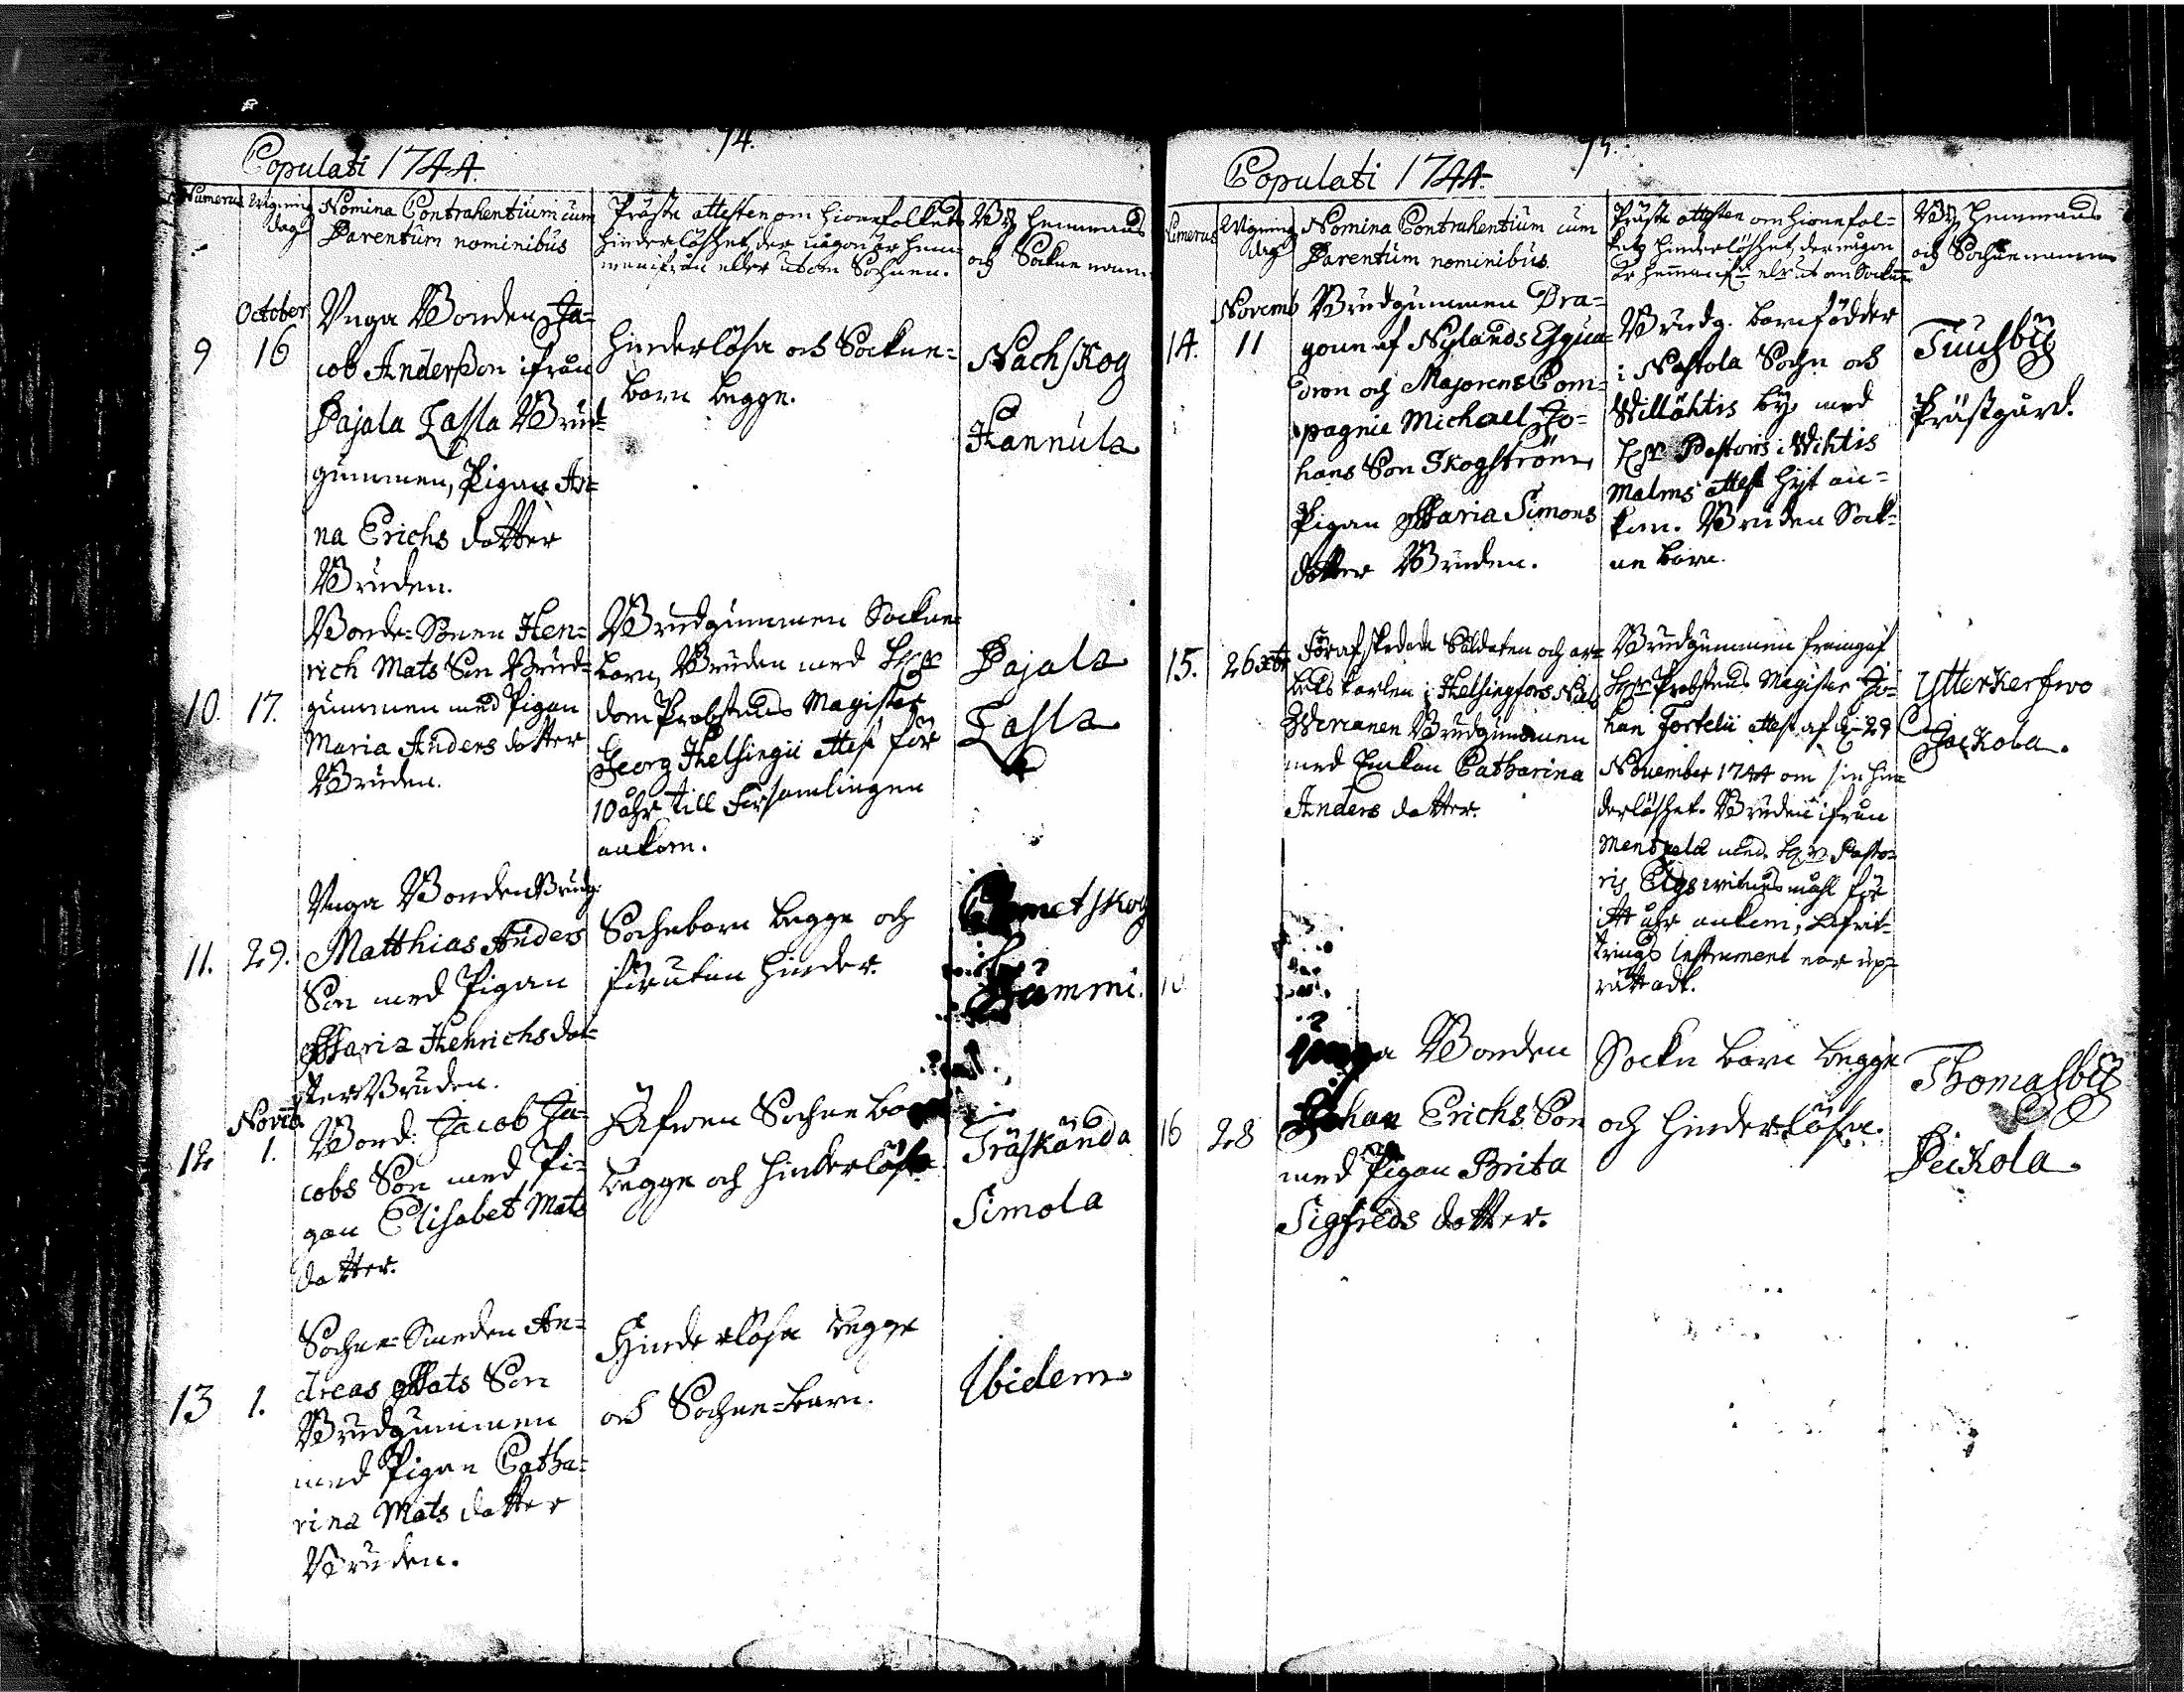 74.
Populati 1744.
Numerus
Wigning
dag
Nomina Contrahentium cum
Parentum nominibus
Präste attesten om Hionefolkets
hinderlöshet, der någon är hem-
man ifrån eller utom Sochnen.
By, Hemmans
och Sockne namn
October
9
16
Unga Bonden Ja=
cob Anderßon ifrån
Pajala Lassla Brud=
gummen, Pigan An=
na Erichs dotter
Bruden.
Hinderlösa och Sockne=
barn begge.
Nachskog
Hannula
10.
17.
Bonde=Sonen Hen=
rich Mats Son Brud=
gummen med Pigan
Maria Anders dotter
Bruden.
Brudgummen Sockne=
barn, Bruden med
dom Probstens Magister
Georg Helsingii attest för
10 åhr till Församlingen
ankom.
Pajala
Lassla
11.
29.
Unga Bonden Brudg.
Matthias Anders
Son med Pigan
Maria Henrichs dot=
ter Bruden.
Sochnebarn begge och
förutan hinder.
12
Novemb.
1.
Bond: Jacob Ja=
cobs Son med Pi=
gan Elisabet Mats
dotter.
Äfwen Sochne
begge och hinderlösa.
Träskända
Simola
13
1.
Sochne=Smeden An=
dreas Mats Son
Brudgummen
med Pigan Catha=
rina Mats dotter
Bruden.
Hinderlösa begge
och Sochne=barn.
Ibidem.
75.
Populati 1744.
Numerus
Wigning
dag
Nomina Contrahentium cum
Parentum nominibus.
Präste attesten om Hionefol=
kets hinderlöshet, der någon
är hemman utom Sockn
By, Hemmans
och Sochne namn
Novemb
14.
11
Brudgummen Dra=
goun af Nylands Esqua=
dron och Majorens Com=
pagnie Michael Jo=
hans Son Skogström,
Pigan Maria Simons
dotter Bruden.
Brudg. barnfödder
i Nastola Sochn och
Willähtis by, med
Pastoris i Wihtis
Malms attest hijt an=
kom. Bruden Sock=
ne barn.
Tuusby
Prästgård.
15.
26 xbr
Förafskedade Soldaten och ar=
betskarlen i Helsingfors
Brudgummen
med Enkan Catharina
Anders dotter.
Brudgummen framgaf
Probstens Magister Jo=
han Forteliі attest af d. 29
November 1744 om sin hin=
derlöshet. Bruden ifrån
med Pasto=
ris witnesmåhl för
itt åhr ankom,
Instrument
Ytterkerfwo
Jäckola.
16
28
Unga Bonden
Johan Erichs Son
med Pigan Brita
Sigfreds dotter.
Sockn barn begge
och hinderlösa.
Thomasby
Peckola.